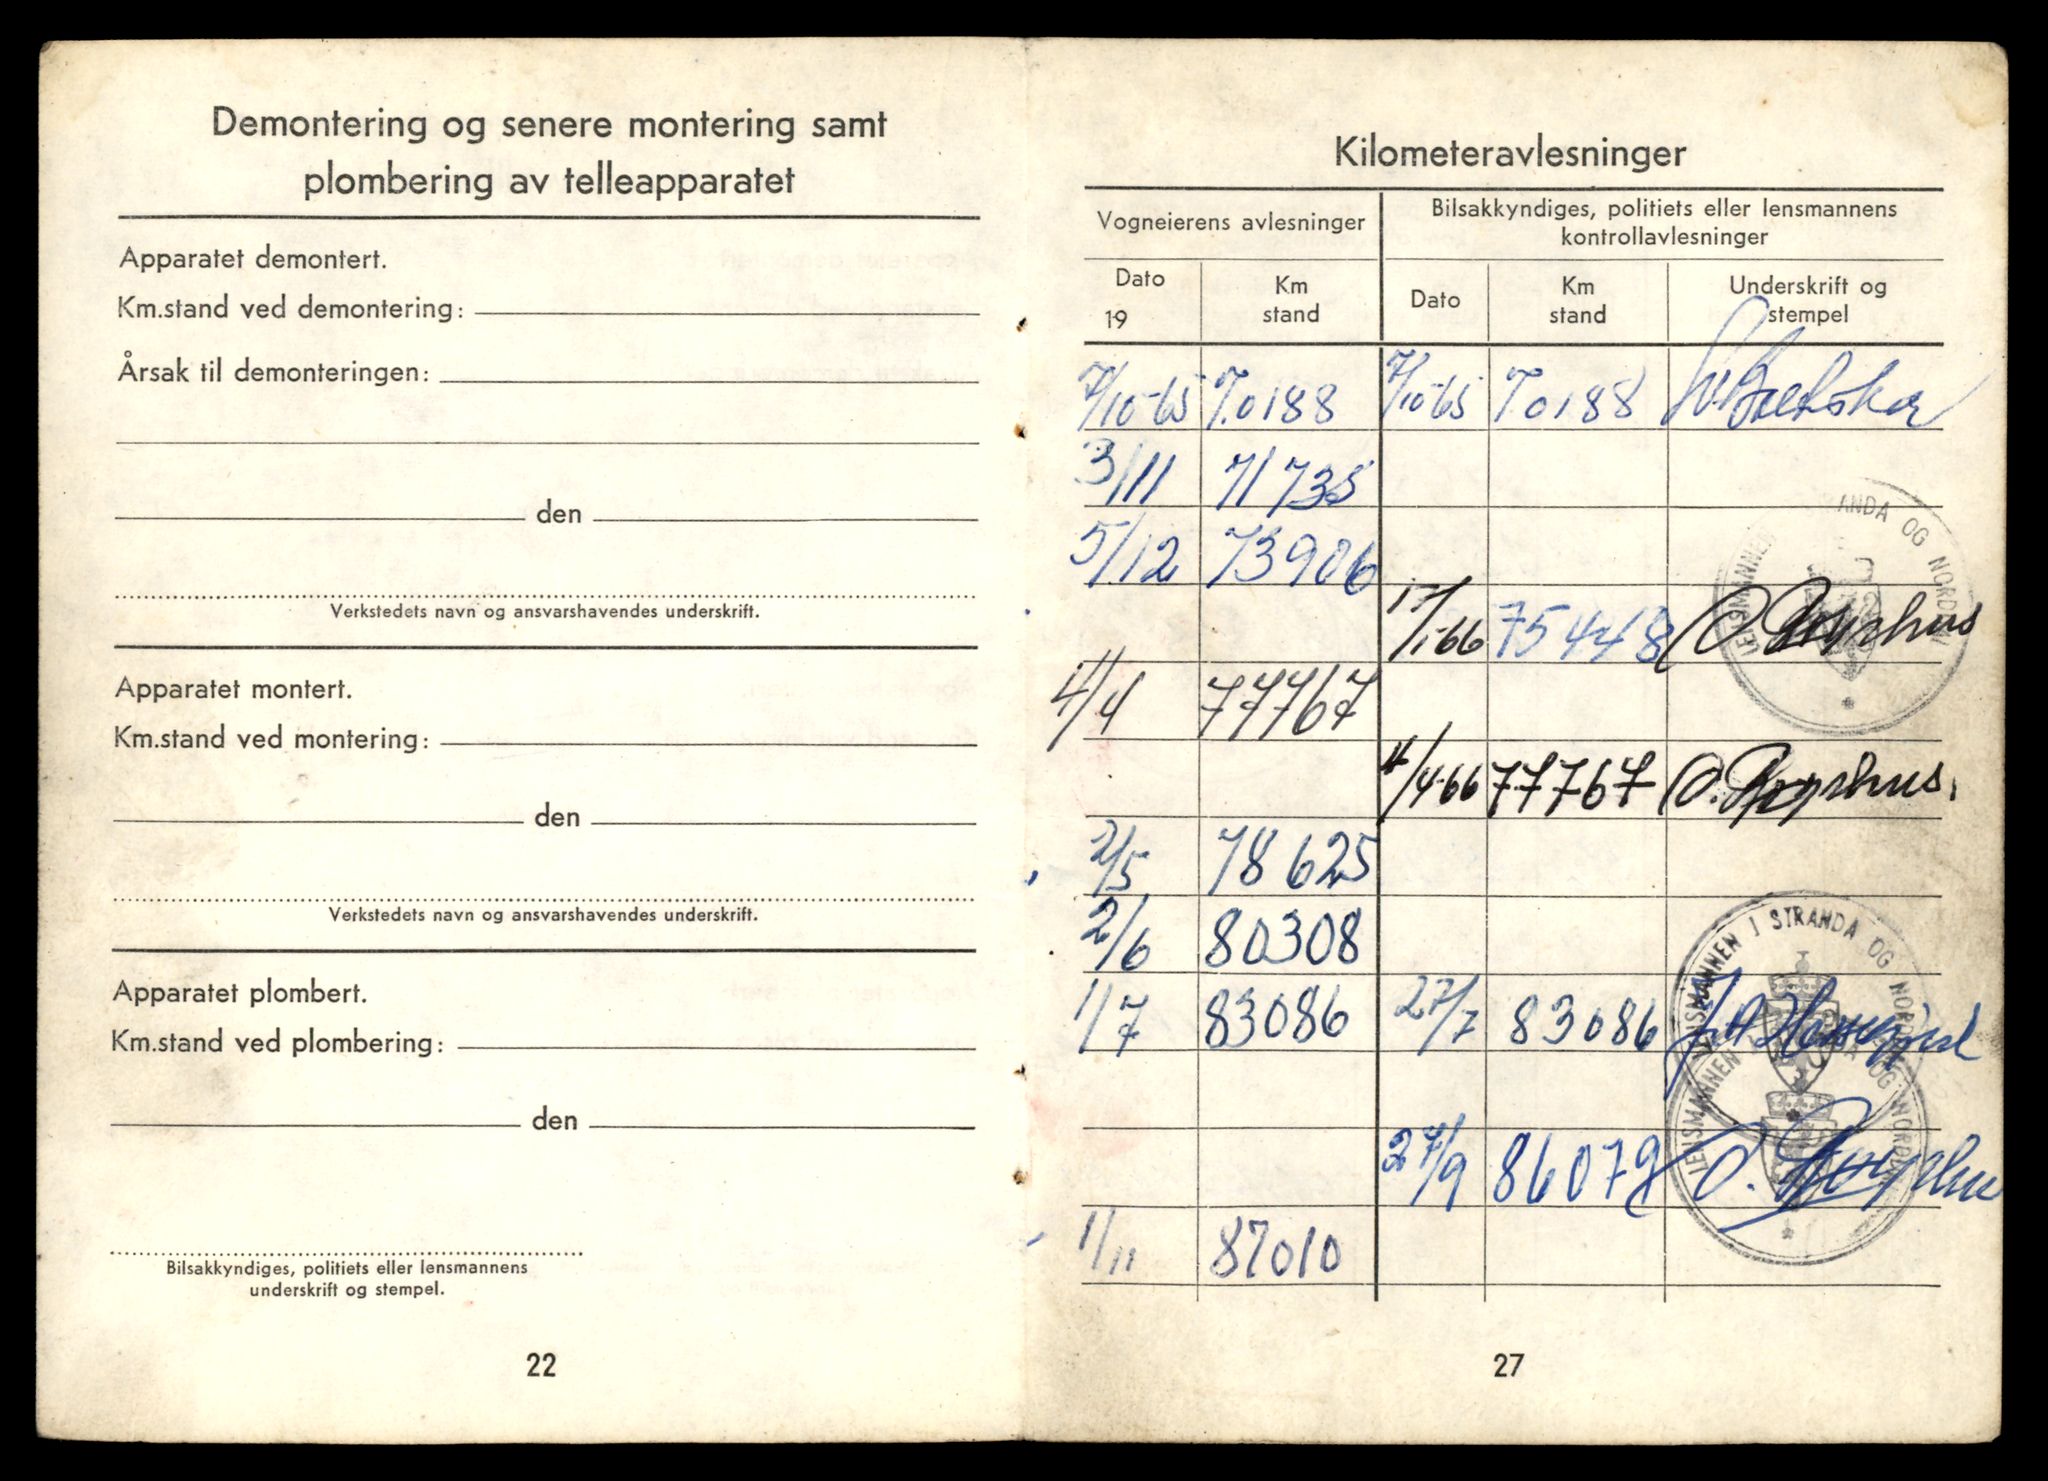 Demontering og senere montering samt
plombering av telleapparatet
Apparatet demontert.
Km.stand ved demontering:
Årsak til demonteringen:
den
Verkstedets navn og ansvarshavendes underskrift.
Apparatet montert.
Km.stand ved montering:
den
Verkstedets navn og ansvarshavendes underskrift.
Apparatet plombert.
Km.stand ved plombering:
den
Bilsakkyndiges, politiets eller lensmannens
underskrift og stempel.
22
Kilometeravlesninger
Vogneierens avlesninger
Bilsakkyndiges, politiets eller lensmannens
kontrollavlesninger
Dato
19
Km
stand
Dato
Km
stand
Underskrift og
stempel
7/10-65 70188 7/10-65 70188
3/11 71735
5/12 73906
LENSMANNEN ANDA OG NORDDAL
17/1-66 75448 O.
4/4 77767
4/4-66 77767 O.
2/5 78625
2/6 80308
LENSMANNEN I STRANDA OG NORDDAL
1/7 83086 27/7 83086
LENSMANNEN I STRANDA OG NORDDAL
27/9 86079 O.
1/11 87010
27